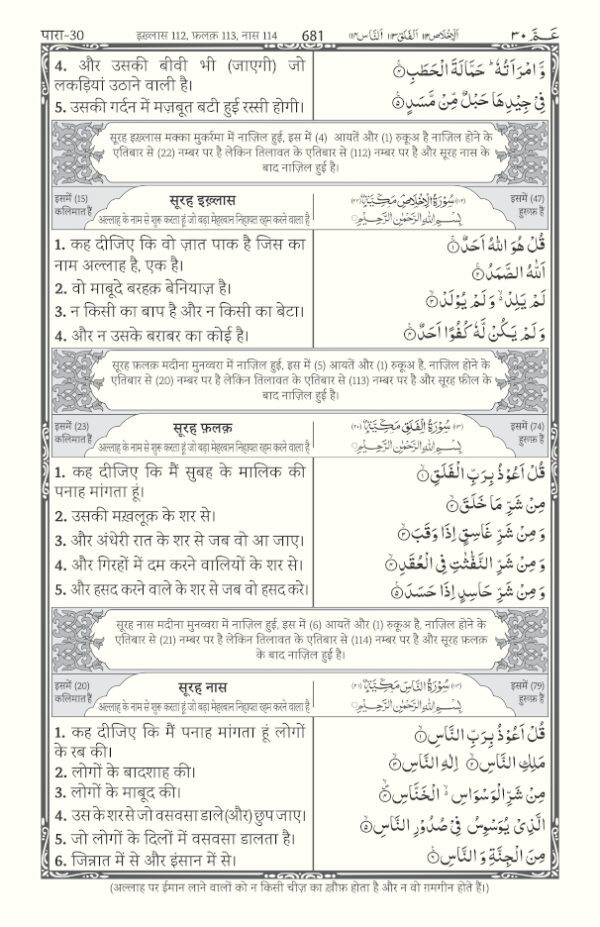 पारा-30 इख़्लास 112, फ़लक़ 113, नास 114 681 اَلْاِخْلَاص ۱۱۲ اَلْفَلَق ۱۱۳ اَلنَّاس ۱۱۴ عَـمَّ ۳۰
4. और उसकी बीवी भी (जाएगी) जो
लकड़ियां उठाने वाली है।
5. उसकी गर्दन में मज़बूत बटी हुई रस्सी होगी।
وَّامْرَاَتُهٗ ؕ حَمَّالَةَ الْحَطَبِ ۟
فِیْ جِیْدِهَا حَبْلٌ مِّنْ مَّسَدٍ ۟
सूरह इख़्लास मक्का मुकर्रमा में नाज़िल हुई, इस में (4) आयतें और (1) रुकूअ है नाज़िल होने के
एतिबार से (22) नम्बर पर है लेकिन तिलावत के एतिबार से (112) नम्बर पर है और सूरह नास के
बाद नाज़िल हुई है।
इसमें (15)
कलिमात हैं
सूरह इख़्लास
अल्लाह के नाम से शुरू करता हूं जो बड़ा मेहरबान निहायत रहम करने वाला है
سُوْرَةُ الْاِخْلَاصِ مَكِّیَّةٌ
بِسْمِ اللّٰهِ الرَّحْمٰنِ الرَّحِیْمِ
इसमें (47)
हुरूफ़ हैं
1. कह दीजिए कि वो ज़ात पाक है जिस का
नाम अल्लाह है, एक है।
2. वो माबूदे बरहक़ बेनियाज़ है।
3. न किसी का बाप है और न किसी का बेटा।
4. और न उसके बराबर का कोई है।
قُلْ هُوَ اللّٰهُ اَحَدٌ ۟
اَللّٰهُ الصَّمَدُ ۟
لَمْ یَلِدْ ۙ وَلَمْ یُوْلَدْ ۟
وَلَمْ یَكُنْ لَّهٗ كُفُوًا اَحَدٌ ۟
सूरह फ़लक़ मदीना मुनव्वरा में नाज़िल हुई, इस में (5) आयतें और (1) रुकूअ है, नाज़िल होने के
एतिबार से (20) नम्बर पर है लेकिन तिलावत के एतिबार से (113) नम्बर पर है और सूरह फ़ील के
बाद नाज़िल हुई है।
इसमें (23)
कलिमात हैं
सूरह फ़लक़
अल्लाह के नाम से शुरू करता हूं जो बड़ा मेहरबान निहायत रहम करने वाला है
سُوْرَةُ الْفَلَقِ مَكِّیَّةٌ
بِسْمِ اللّٰهِ الرَّحْمٰنِ الرَّحِیْمِ
इसमें (74)
हुरूफ़ हैं
1. कह दीजिए कि मैं सुबह के मालिक की
पनाह मांगता हूं।
2. उसकी मख़लूक़ के शर से।
3. और अंधेरी रात के शर से जब वो आ जाए।
4. और गिरहों में दम करने वालियों के शर से।
5. और हसद करने वाले के शर से जब वो हसद करे।
قُلْ اَعُوْذُ بِرَبِّ الْفَلَقِ ۟
مِنْ شَرِّ مَا خَلَقَ ۟
وَمِنْ شَرِّ غَاسِقٍ اِذَا وَقَبَ ۟
وَمِنْ شَرِّ النَّفّٰثٰتِ فِی الْعُقَدِ ۟
وَمِنْ شَرِّ حَاسِدٍ اِذَا حَسَدَ ۟
सूरह नास मदीना मुनव्वरा में नाज़िल हुई, इस में (6) आयतें और (1) रुकूअ है, नाज़िल होने के
एतिबार से (21) नम्बर पर है लेकिन तिलावत के एतिबार से (114) नम्बर पर है और सूरह फ़लक़
के बाद नाज़िल हुई है।
इसमें (20)
कलिमात हैं
सूरह नास
अल्लाह के नाम से शुरू करता हूं जो बड़ा मेहरबान निहायत रहम करने वाला है
سُوْرَةُ النَّاسِ مَكِّیَّةٌ
بِسْمِ اللّٰهِ الرَّحْمٰنِ الرَّحِیْمِ
इसमें (79)
हुरूफ़ हैं
1. कह दीजिए कि मैं पनाह मांगता हूं लोगों
के रब की।
2. लोगों के बादशाह की।
3. लोगों के माबूद की।
4. उस के शर से जो वसवसा डाले(और) छुप जाए।
5. जो लोगों के दिलों में वसवसा डालता है।
6. जिन्नात में से और इंसान में से।
قُلْ اَعُوْذُ بِرَبِّ النَّاسِ ۟
مَلِكِ النَّاسِ ۟ اِلٰهِ النَّاسِ ۟
مِنْ شَرِّ الْوَسْوَاسِ ۙ الْخَنَّاسِ ۟
الَّذِیْ یُوَسْوِسُ فِیْ صُدُوْرِ النَّاسِ ۟
مِنَ الْجِنَّةِ وَالنَّاسِ ۟
(अल्लाह पर ईमान लाने वालों को न किसी चीज़ का ख़ौफ़ होता है और न वो ग़मगीन होते हैं।)